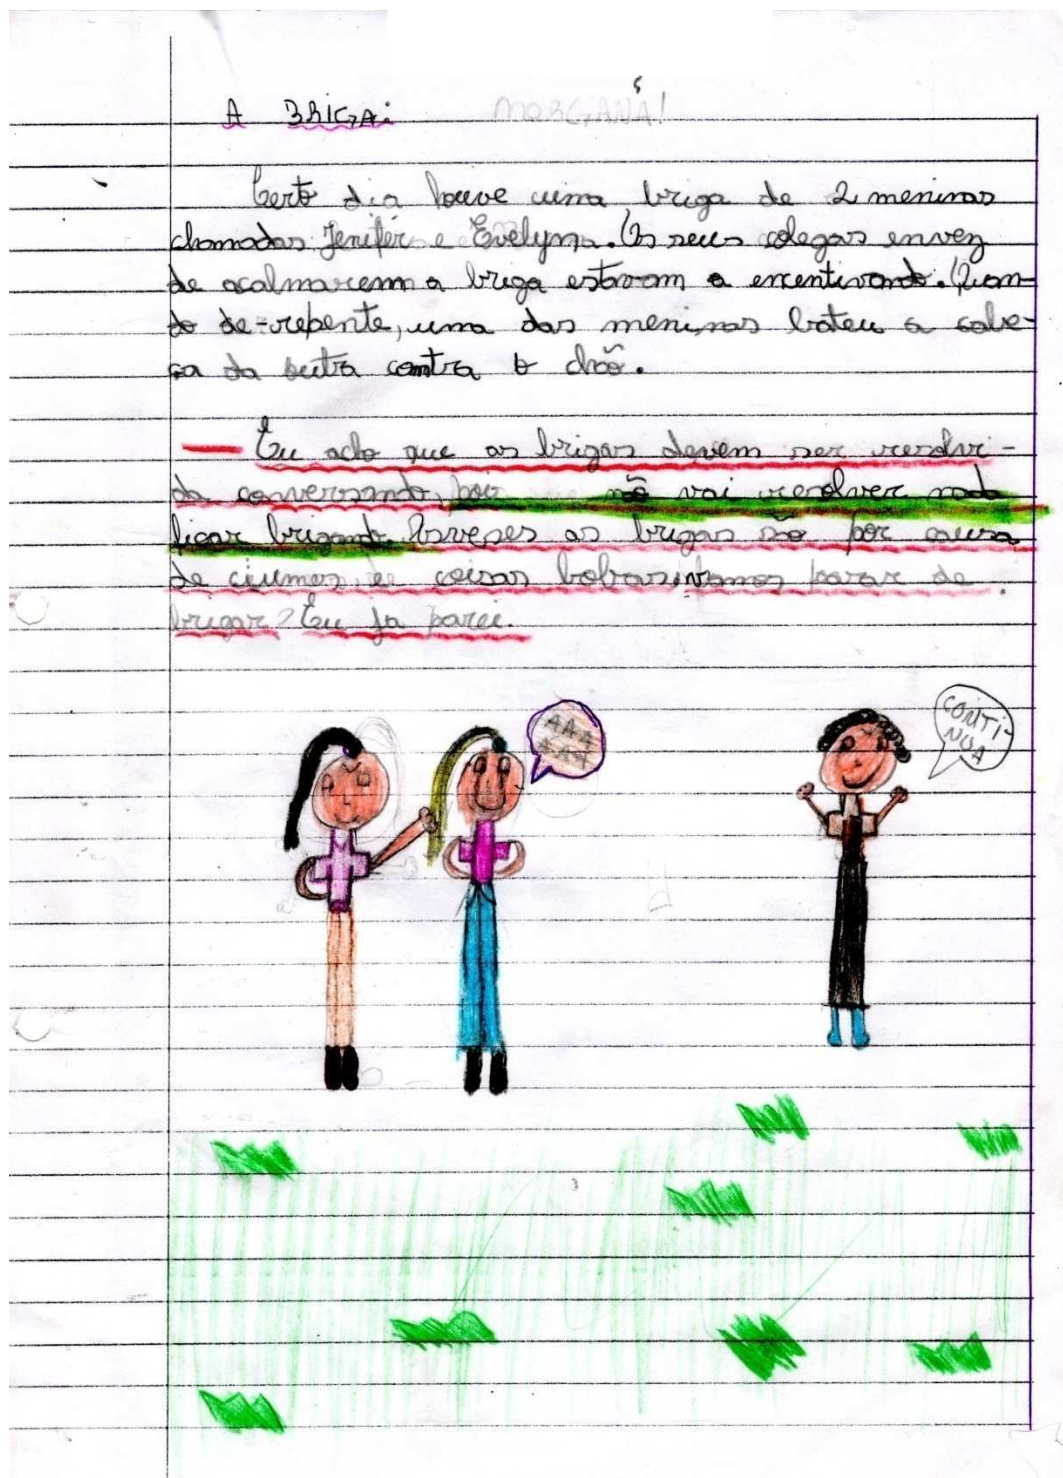 A BRIGA: MORGANA!
Certo dia houve uma briga de 2 meninas
chamadas Jenifer e Evelyn. Os seus colegas envez
de acalmarem a briga estavam a encentivando. Quan-
do de-repente, uma das meninas bateu a cabe-
ça da outra contra o chão.
— Eu acho que as brigas devem ser resolvi-
da conversando, pois não vai resolver nada
ficar brigando. Asveses as brigas são por causa
de ciumes, e coisas bobas, vamos parar de
brigar? Eu ja parei.
AAA
AAA
CONTI-
NUA